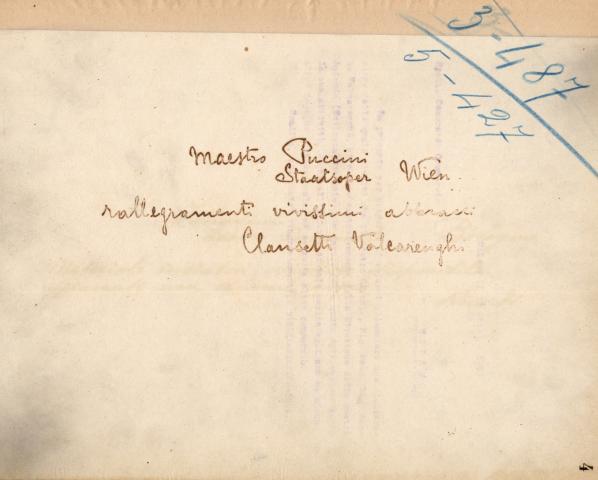 3-487
5-427
Maestro Puccini
Staatsoper Wien.
rallegramenti vivissimi abbracci
Clausetti Valcarenghi
4